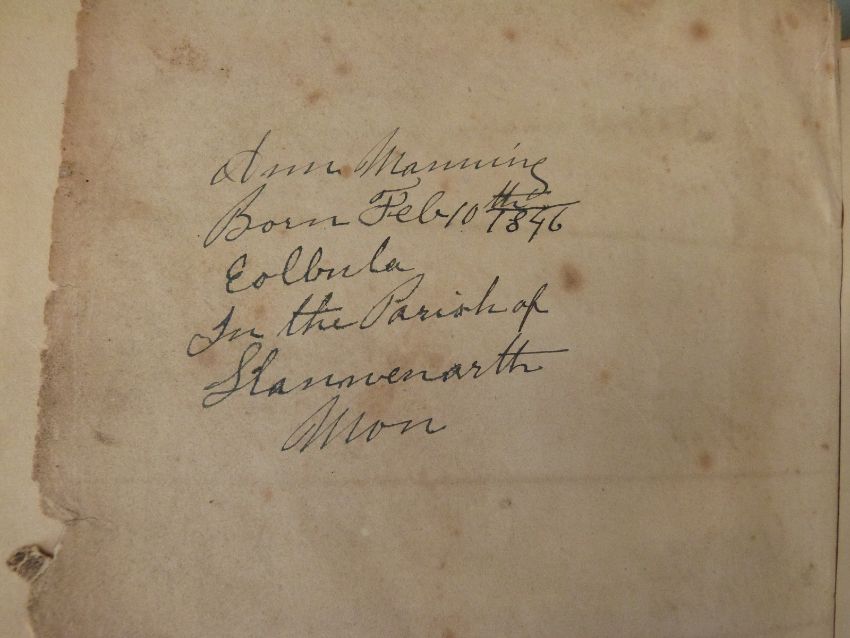 Ann Manning
Born Feb 10th 1846
Colbula
In the Parish of
Llanwenarth
Mon